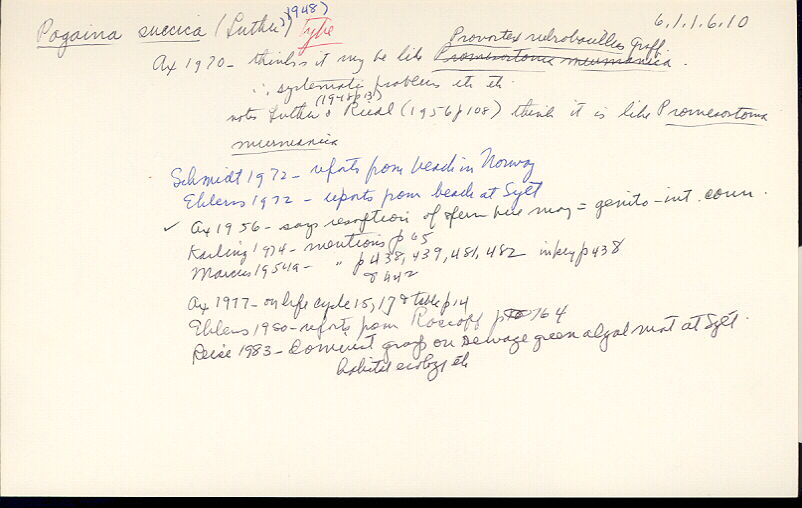 Pogaina suecica (Luther) 1948) type 6.1.1.6.10
Provortex rubrobacillus Graff.
Ax 1970 - thinks it may be like Promesostoma murmanica.
∴ systematic problem etc etc
(1948 p131)
notes Luther & Riedl (1956 p108) think it is like Promesostoma
murmanica
Schmidt 1972 - reports from beach in Norway
Ehlers 1972 - reports from beach at Sylt
✓ Ax 1956 - says resorption of sperm here may = genito-int. conn.
Karling 1974 - mentions p65
Marcus 1954a - " p438, 439, 481, 482 in key p438
& 442
Ax 1977 - on life cycle 15, 17 & table p14
Ehlers 1980 - reports from Roscoff p 164
Reise 1983 - Dominant group on sewage green algal mat at Sylt.
habitat ecology etc